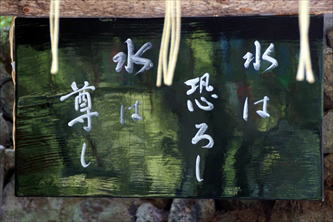 水は
恐ろし
水は
尊し